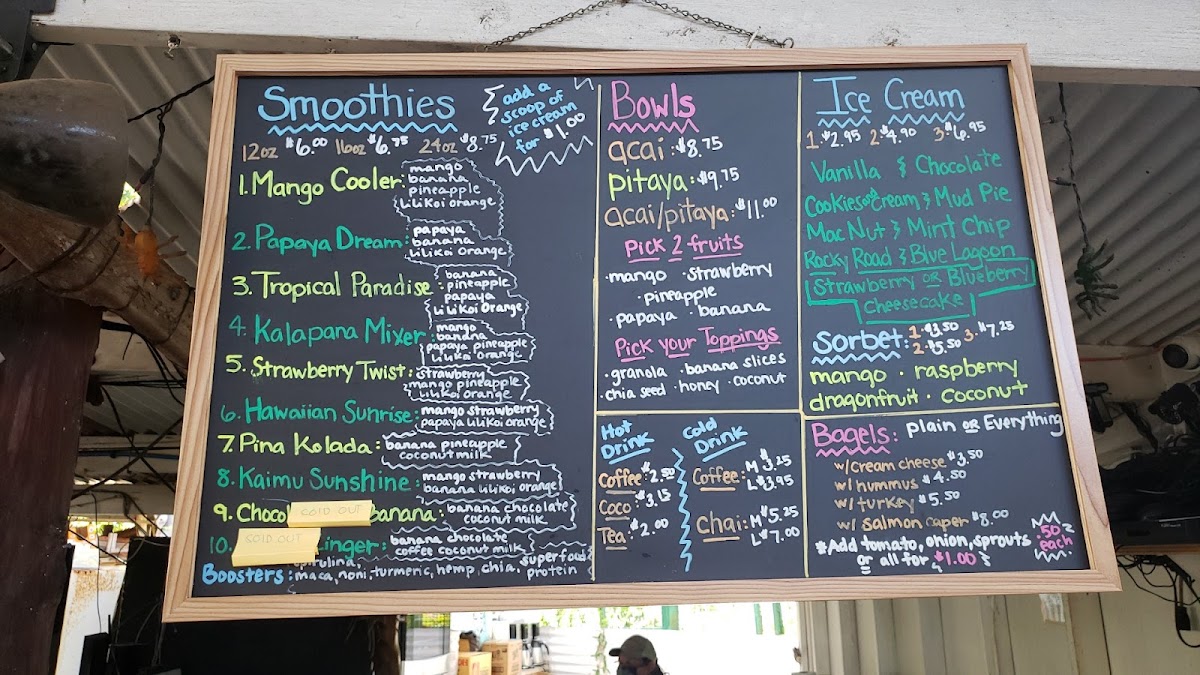 Smoothies
add a
scoop of
ice cream
for $1.00
12oz $6.00 16oz $6.75 24oz $8.75
1. Mango Cooler: mango
banana
pineapple
Lilikoi orange
2. Papaya Dream: papaya
banana
lilikoi orange
3. Tropical Paradise: banana
pineapple
papaya
Lilikoi Orange
4. Kalapana Mixer: mango
banana
papaya pineapple
lilikoi orange
5. Strawberry Twist: strawberry
mango pineapple
lilikoi orange
6. Hawaiian Sunrise: mango strawberry
papaya lilikoi orange
7. Pina Kolada: banana pineapple
coconut milk
8. Kaimu Sunshine: mango strawberry
banana lilikoi orange
9. Choco SOLD OUT banana: banana chocolate
coconut milk
10. SOLD OUT inger: banana chocolate
coffee coconut milk
Boosters: spirulina, superfood
maca, noni, turmeric, hemp, chia, protein
Bowls
acai: $8.75
pitaya: $9.75
acai/pitaya: $11.00
Pick 2 fruits
·mango ·strawberry
·pineapple
·papaya ·banana
Pick your Toppings
·granola ·banana slices
·chia seed ·honey ·coconut
Hot
Drink
Coffee: $2.50
Coco: $3.15
Tea: $2.00
Cold
Drink
Coffee: M $3.25
L $3.95
Chai: M $5.25
L $7.00
Ice Cream
1. $2.95 2. $4.90 3. $6.95
Vanilla & Chocolate
Cookies and Cream & Mud Pie
Mac Nut & Mint Chip
Rocky Road & Blue Lagoon
Strawberry OR Blueberry
Cheesecake
Sorbet: 1. $3.50 3. $7.25
2. $5.50
mango · raspberry
dragonfruit · coconut
Bagels: Plain OR Everything
w/cream cheese $3.50
w/ hummus $4.50
w/ turkey $5.50
w/ salmon caper $8.00
*Add tomato, onion, sprouts .50 each
or all for $1.00